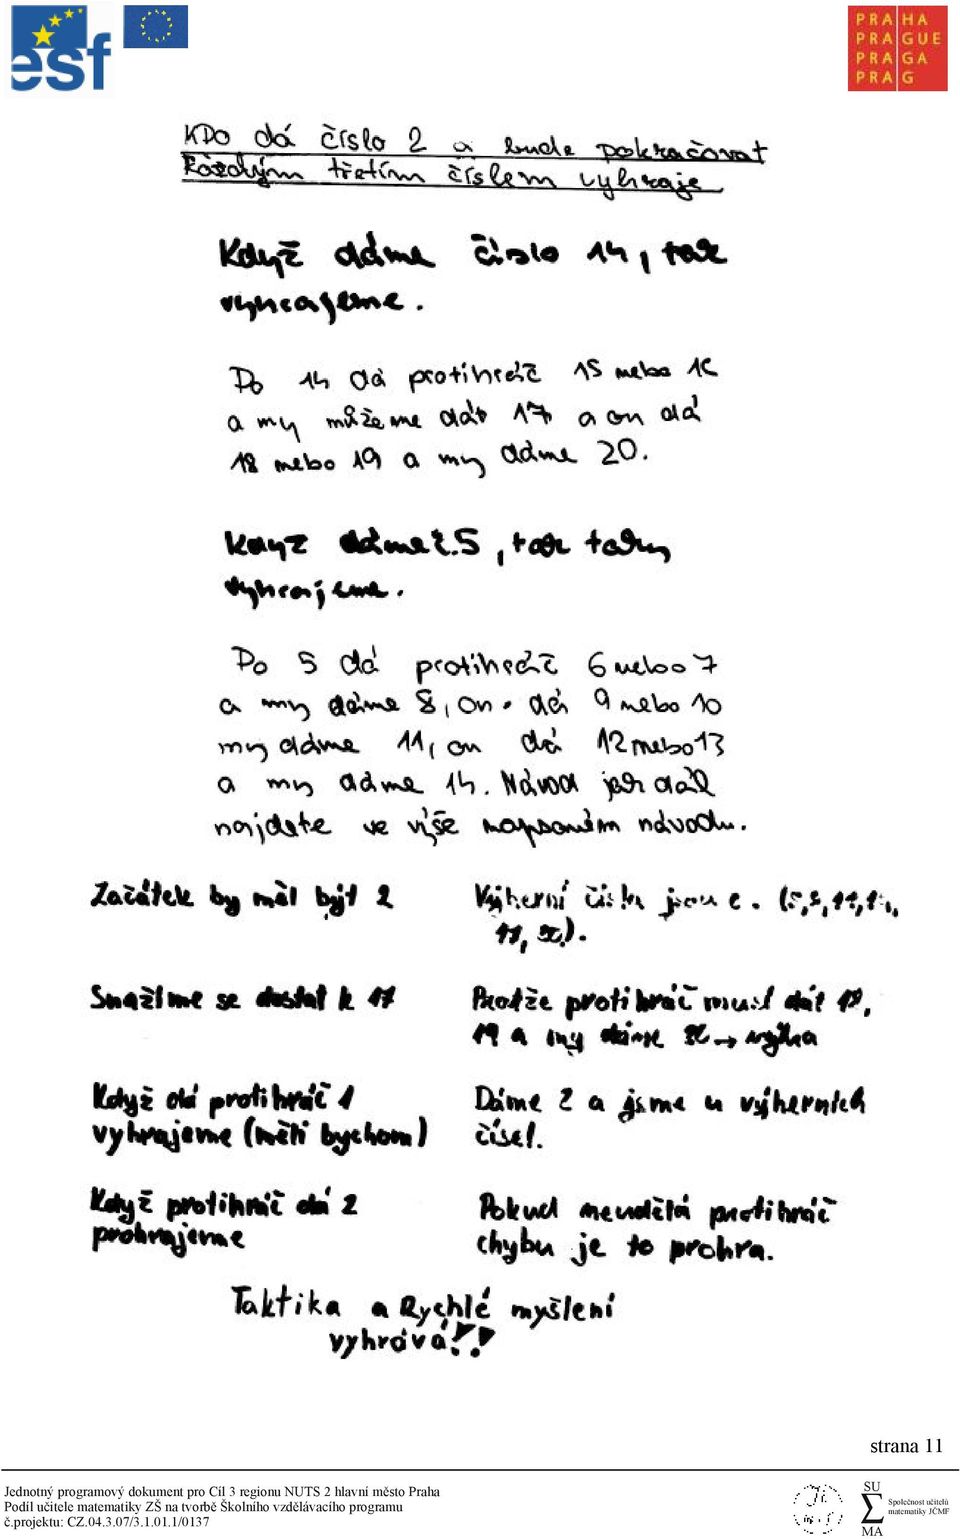 esf
PRAHA
PRAGUE
PRAGA
PRAG
KDo dá číslo 2 a bude pokračovat
každým třetím číslem vyhraje
Když dáme číslo 14, tak
vyhrajeme.
Po 14 dá protihráč 15 nebo 16
a my můžeme dát 17 a on dá
18 nebo 19 a my dáme 20.
Když dáme č.5, tak taky
vyhrajeme.
Po 5 dá protihráč 6 nebo 7
a my dáme 8, on dá 9 nebo 10
my dáme 11, on dá 12 nebo 13
a my dáme 14. Návod jak dál
najdete ve víše napsaném návodu.
Začátek by měl být 2
Výherní čísla jsou
Snažíme se dostat k 17
protihráč musí dát 18,
19 a my dáme 20 → výhra
Když dá protihráč 1
vyhrajeme (měli bychom)
Dáme 2 a jsme u výherních
čísel.
Když protihráč dá 2
prohrajeme
Pokud neudělá protihráč
chybu je to prohra.
Taktika a Rychlé myšlení
vyhrává!!
strana 11
Jednotný programový dokument pro Cíl 3 regionu NUTS 2 hlavní město Praha
Podíl učitele matematiky ZŠ na tvorbě Školního vzdělávacího programu
č.projektu: CZ.04.3.07/3.1.01.1/0137
SU
Σ
MA
Společnost učitelů
matematiky JČMF